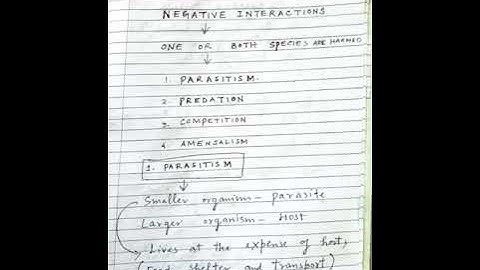 NEGATIVE INTERACTIONS
ONE OR BOTH SPECIES ARE HARMED
1. PARASITISM.
2. PREDATION
3. COMPETITION
4. AMENSALISM
1. PARASITISM
Smaller organism - parasite
Larger organism - Host
Lives at the expense of host,
(Food, shelter and transport)